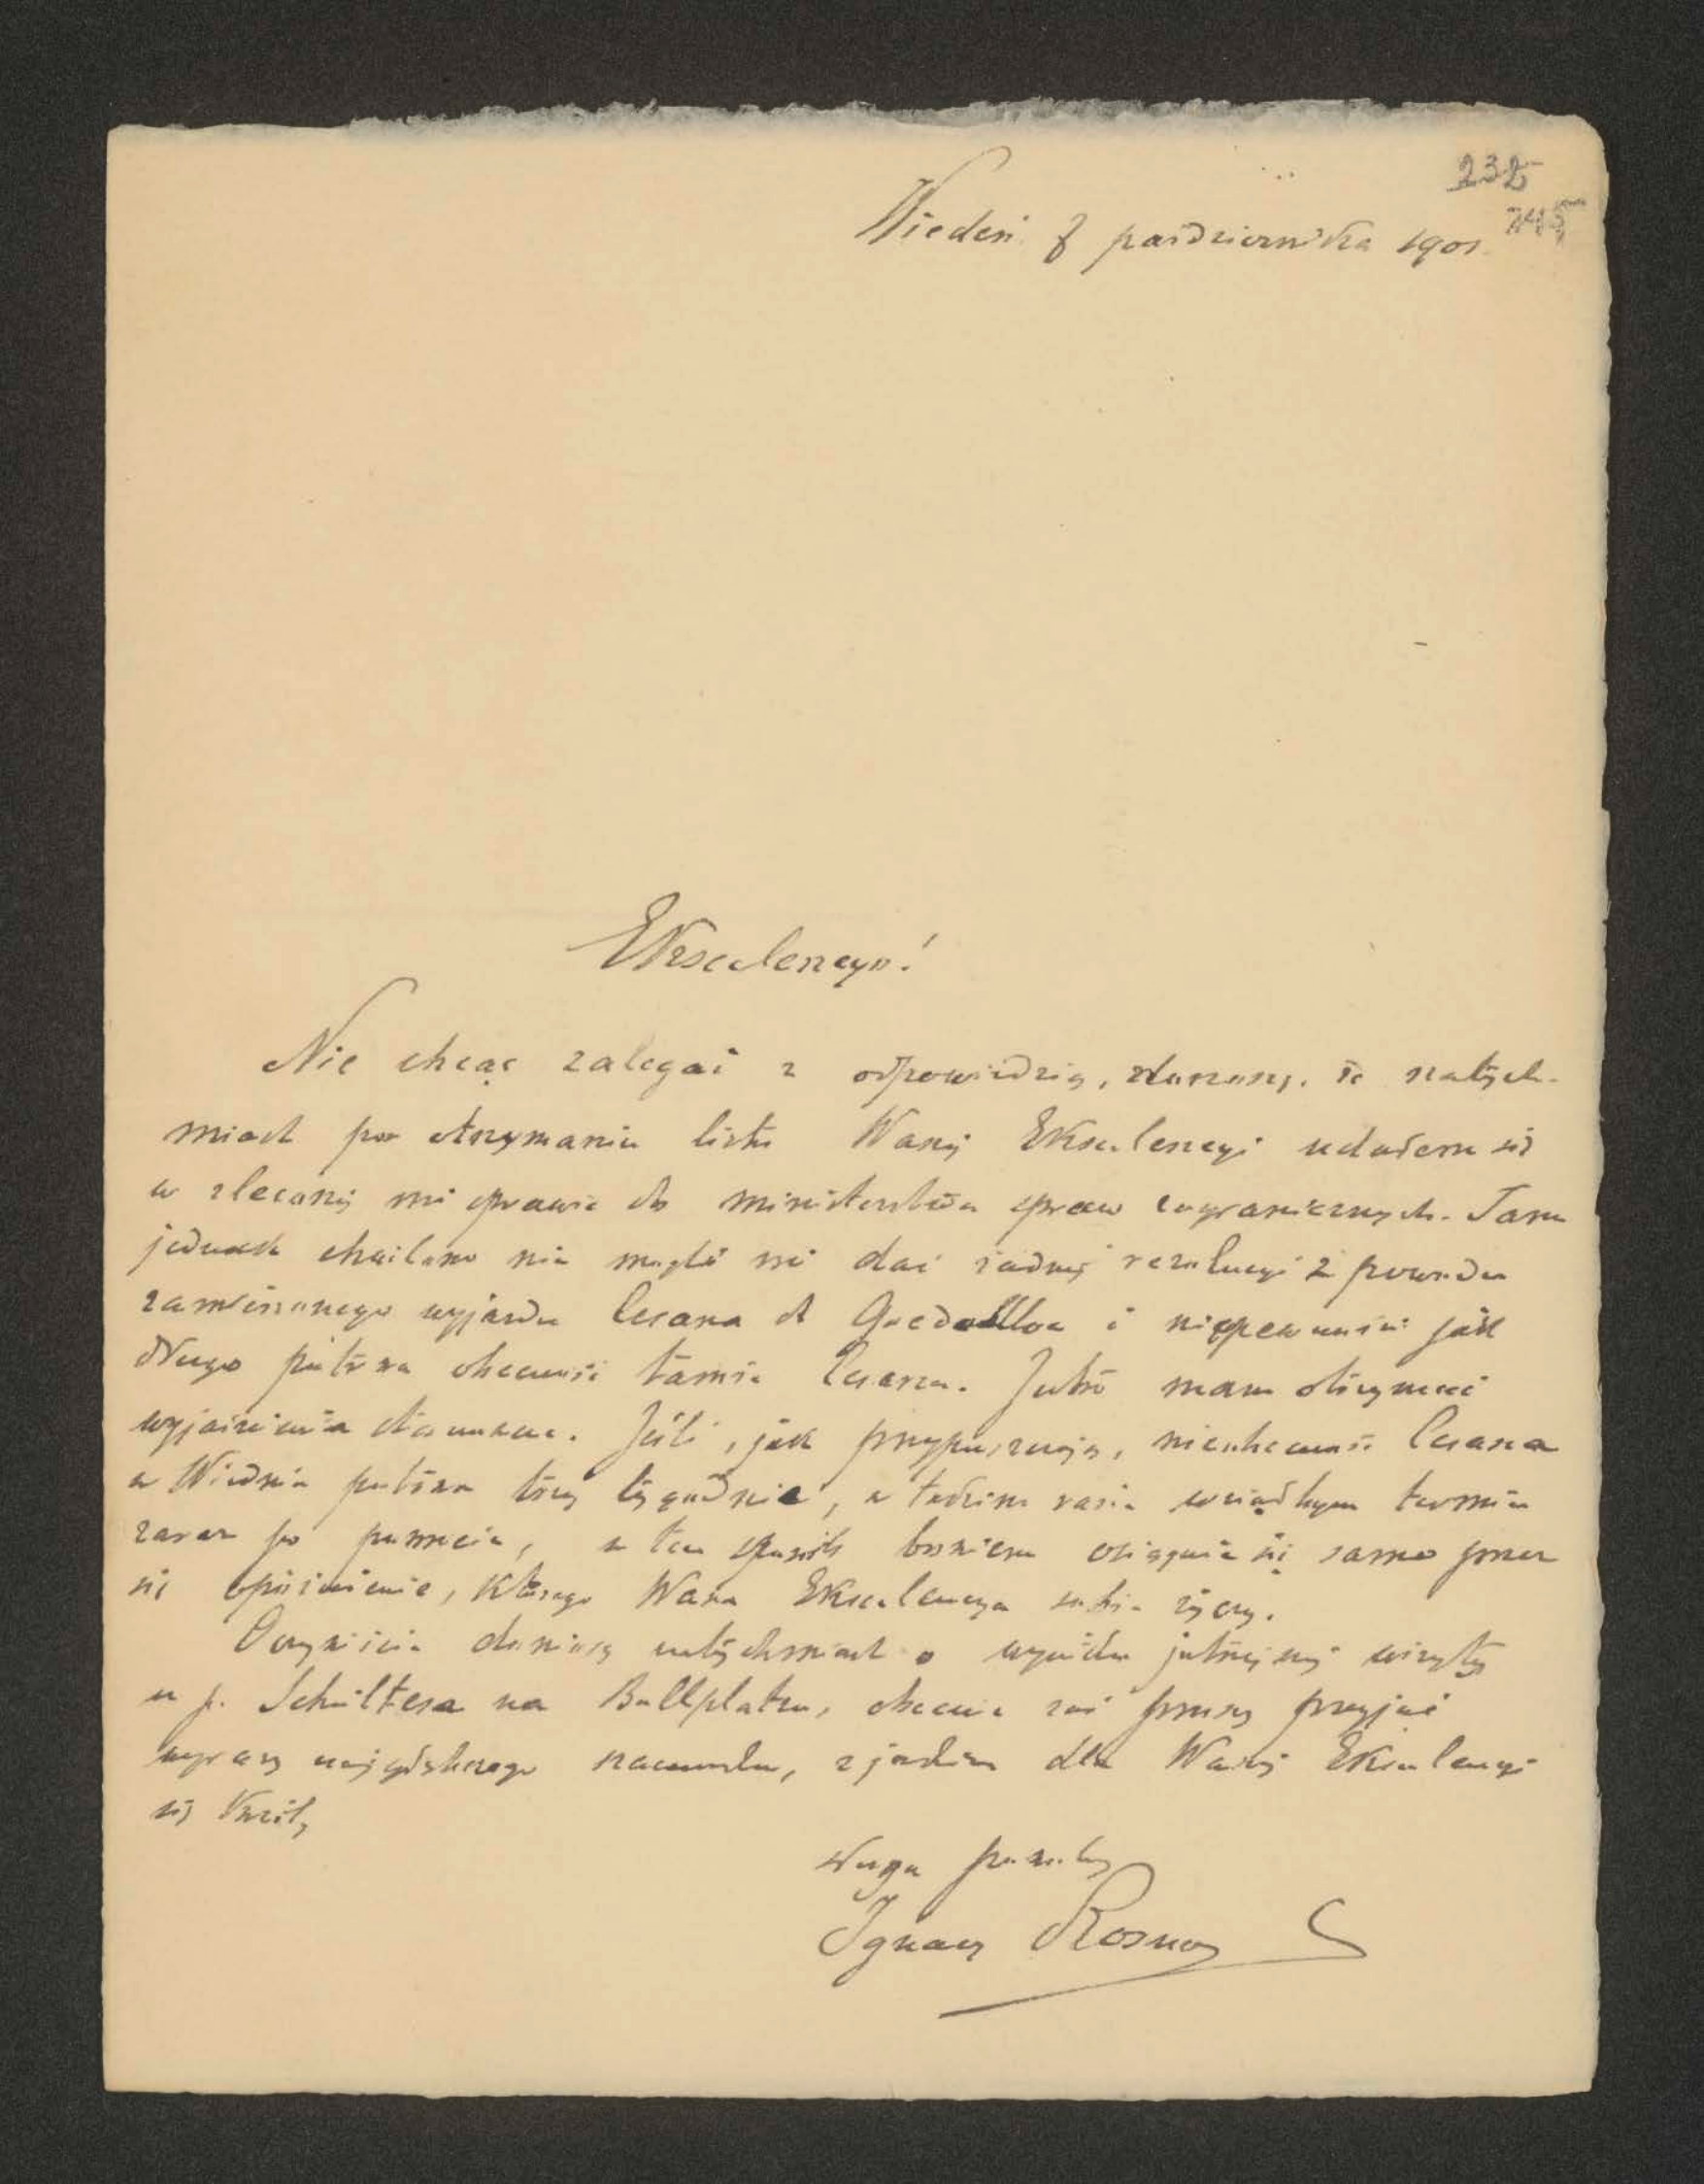 235
745
Wiedeń 8 października 1901.
Ekscelencyo!
Nie chcąc zalegać z odpowiedzią, donoszę, że natych-
miast po otrzymaniu listu Waszej Ekscelencyi udałem się
w zleconej mi sprawie do ministerstwa spraw zagranicznych. Tam
jednak chwilowo nie mogli mi dać żadnej rezolucyi z powodu
zamierzonego wyjazdu Cesarza do Goedolloe i niepewności jak
długo potrwa obecność tamże Cesarza. Jutro mam otrzymać
wyjaśnienia stanowcze. Jeśli, jak przypuszczają, nieobecność Cesarza
w Wiedniu potrwa trzy tygodnie, w takim razie wziąłbym termin
zaraz po powrocie, w ten sposób bowiem osiągnie się samo przez
się opóźnienie, którego Wasza Ekscelencya sobie życzy.
Oczywiście doniosę natychmiast o wyniku jutrzejszej wizyty
u p. Schultesa na Ballplatzu, obecnie zaś proszę przyjąć
wyrazy najgłębszego szacunku, z jakim dla Waszej Ekscelencyi
się kreślę
sługa powolny
Ignacy Rosner